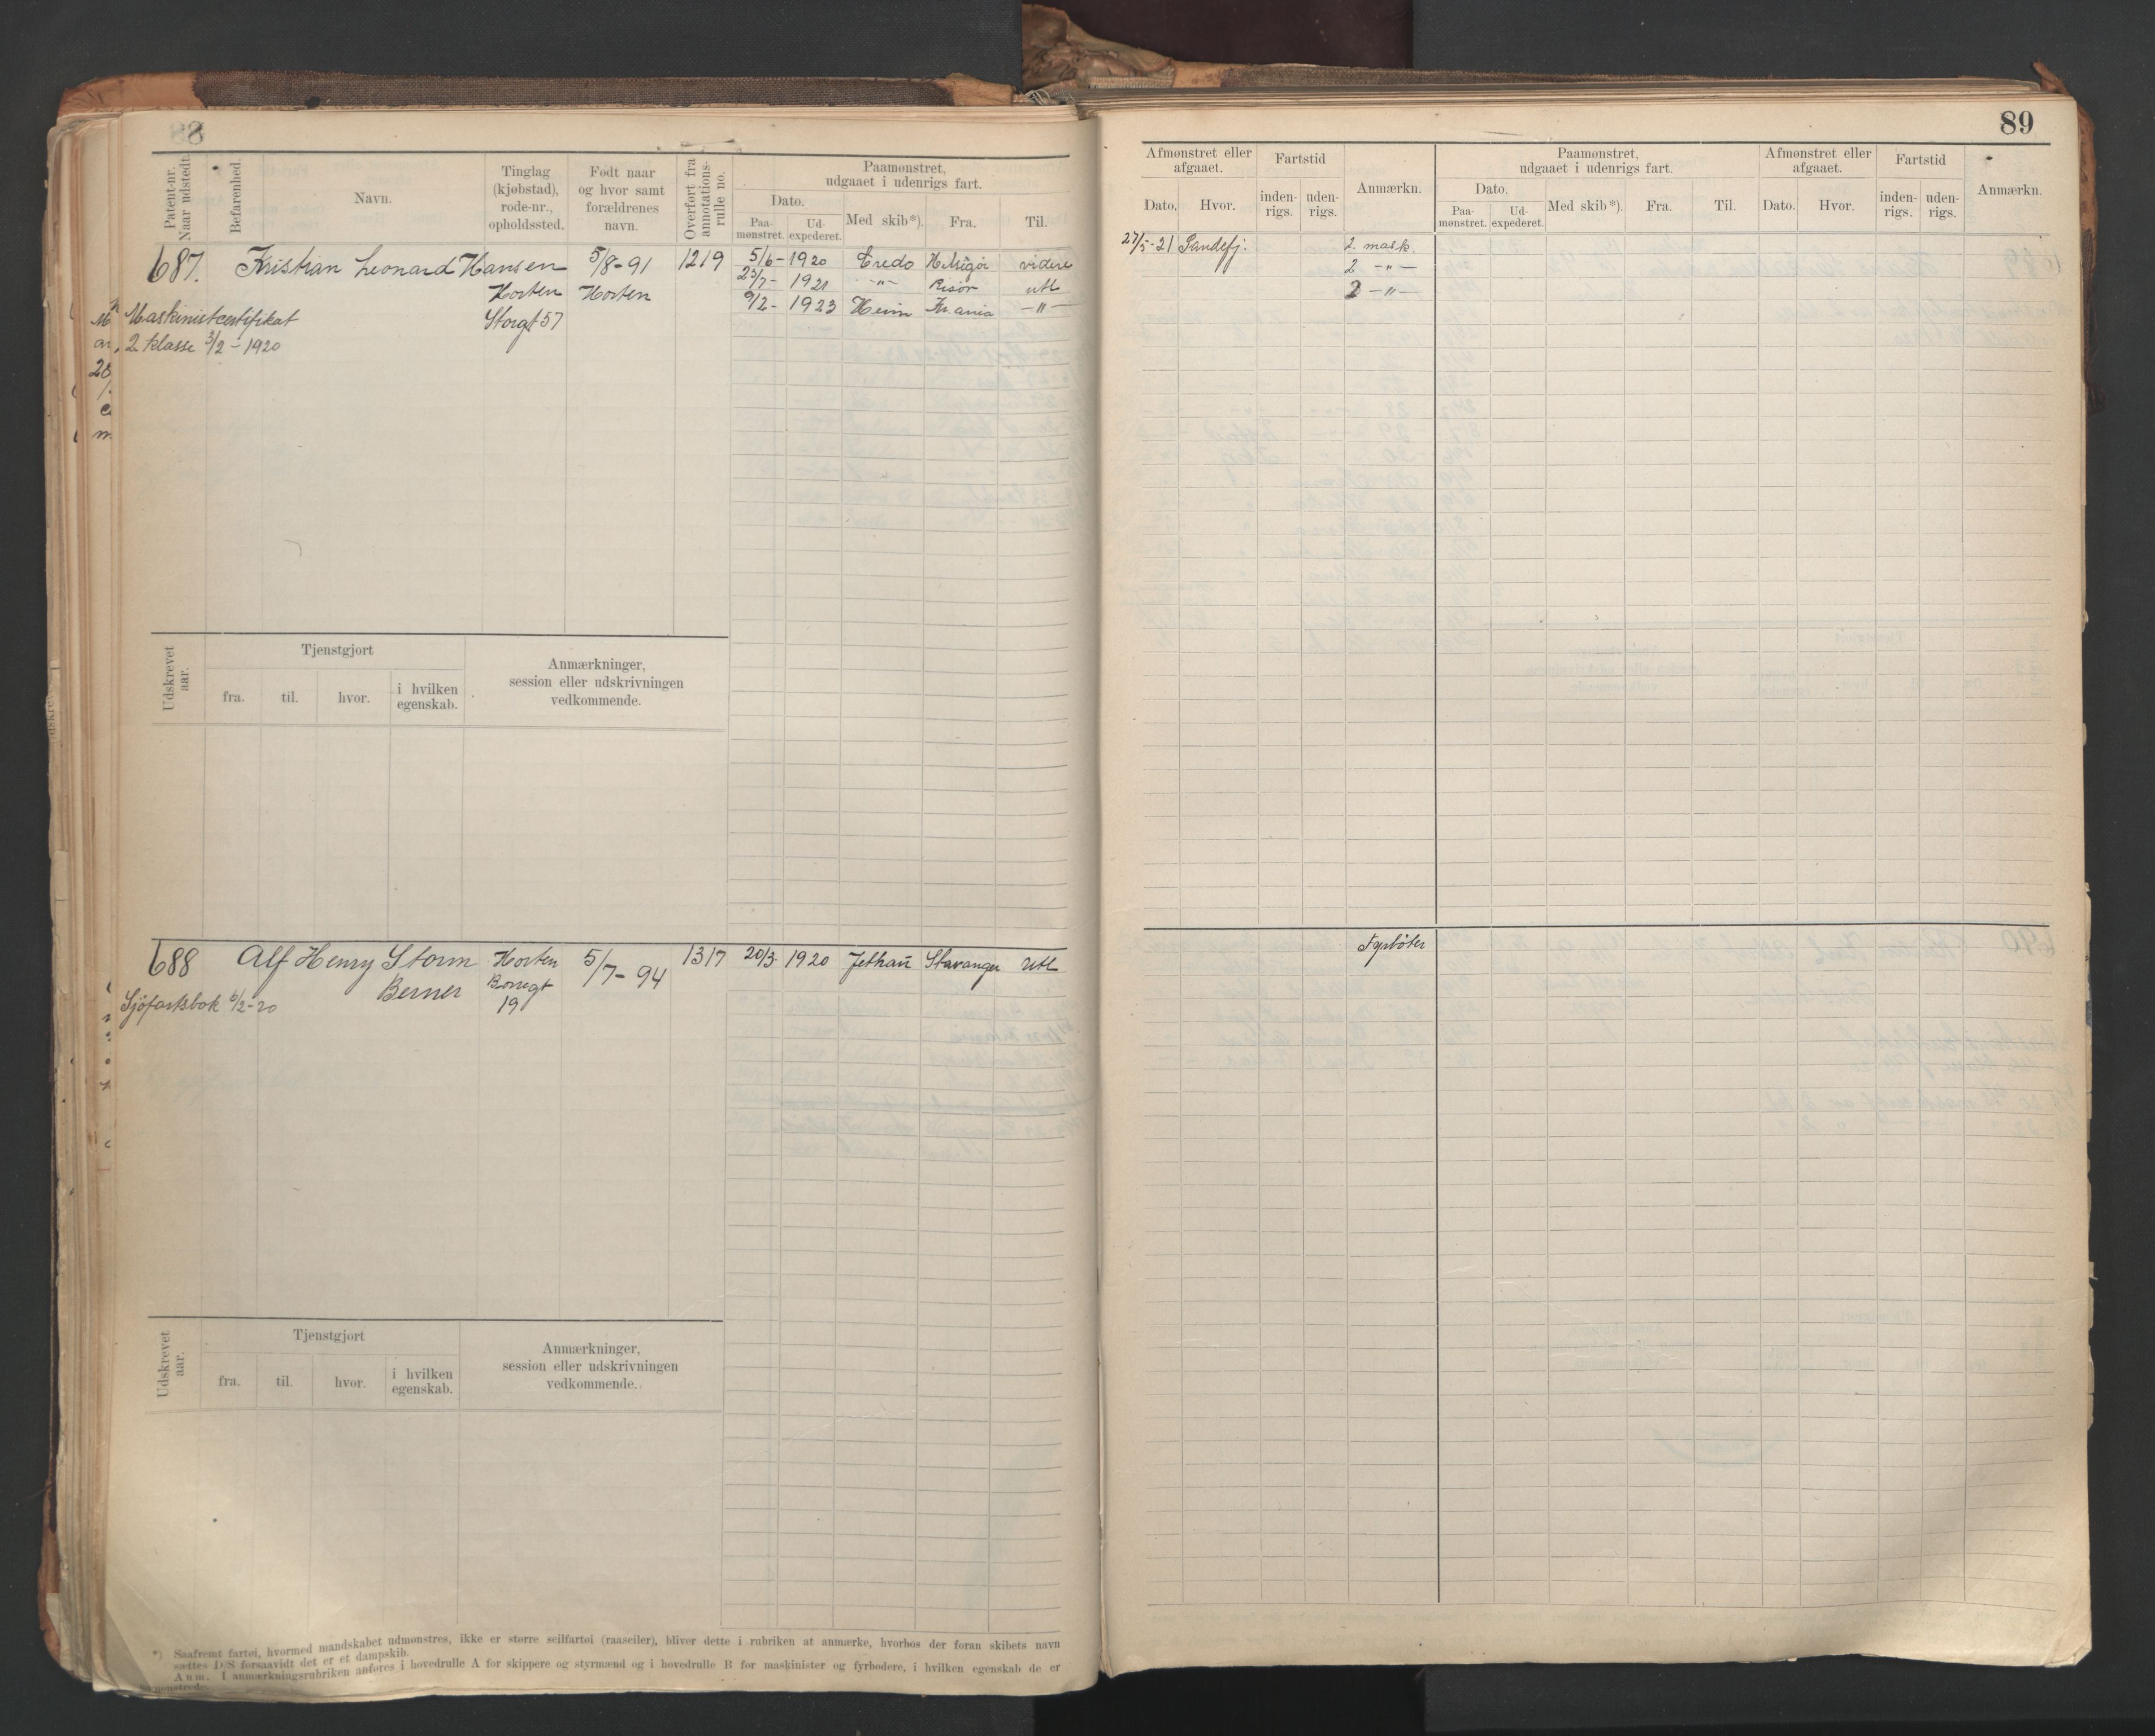 88
Patent-nr. Naar udstedt.
Befarenhed.
Navn.
Tinglag (kjøbstad), rode-nr., opholdssted.
Født naar og hvor samt forældrenes navn.
Overført fra annotations-rulle no.
Paamønstret, udgaaet i udenrigs fart.
Dato.
Paa-mønstret.
Ud-expederet.
Med skib*).
Fra.
Til.
687. Kristian Leonard Hansen 5/8-91 1219 5/6-1920 Eredo videre
Horten Horten 23/7- 1921 -"- Risør utl
Maskinistcertifikat Storgt 57 9/2- 1923 Heim Kr.ania -"-
2 klasse 3/2-1920
Udskrevet aar.
Tjenstgjort
fra.
til.
hvor.
i hvilken egenskab.
Anmærkninger,
session eller udskrivningen
vedkommende.
688 Alf Henry Storm Horten 5/7-94 1317 20/3 1920 Stavanger Utl
Berner Borregt
Sjöfartsbok 6/2-20 19
Udskrevet aar.
Tjenstgjort
fra.
til.
hvor.
i hvilken egenskab.
Anmærkninger,
session eller udskrivningen
vedkommende.
*) Saafremt fartøi, hvormed mandskabet udmønstres, ikke er større seilfartøi (raaseiler), bliver dette i rubriken at anmærke, hvorhos der foran skibets navn
sættes D/S forsaavidt det er et dampskib.
Anm. I anmærkningsrubriken anføres i hovedrulle A for skippere og styrmænd og i hovedrulle B for maskinister og fyrbødere, i hvilken egenskab de er
89
Afmønstret eller afgaaet.
Dato.
Hvor.
Fartstid
inden-rigs.
uden-rigs.
Anmærkn.
Paamønstret,
udgaaet i udenrigs fart.
Dato.
Paa-mønstret.
Ud-expederet.
Med skib*).
Fra.
Til.
Afmønstret eller afgaaet.
Dato.
Hvor.
Fartstid
inden-rigs.
uden-rigs.
Anmærkn.
27/5-21 Sandefj. 2. mask.
2 -"-
2 -"-
Fyrbøter